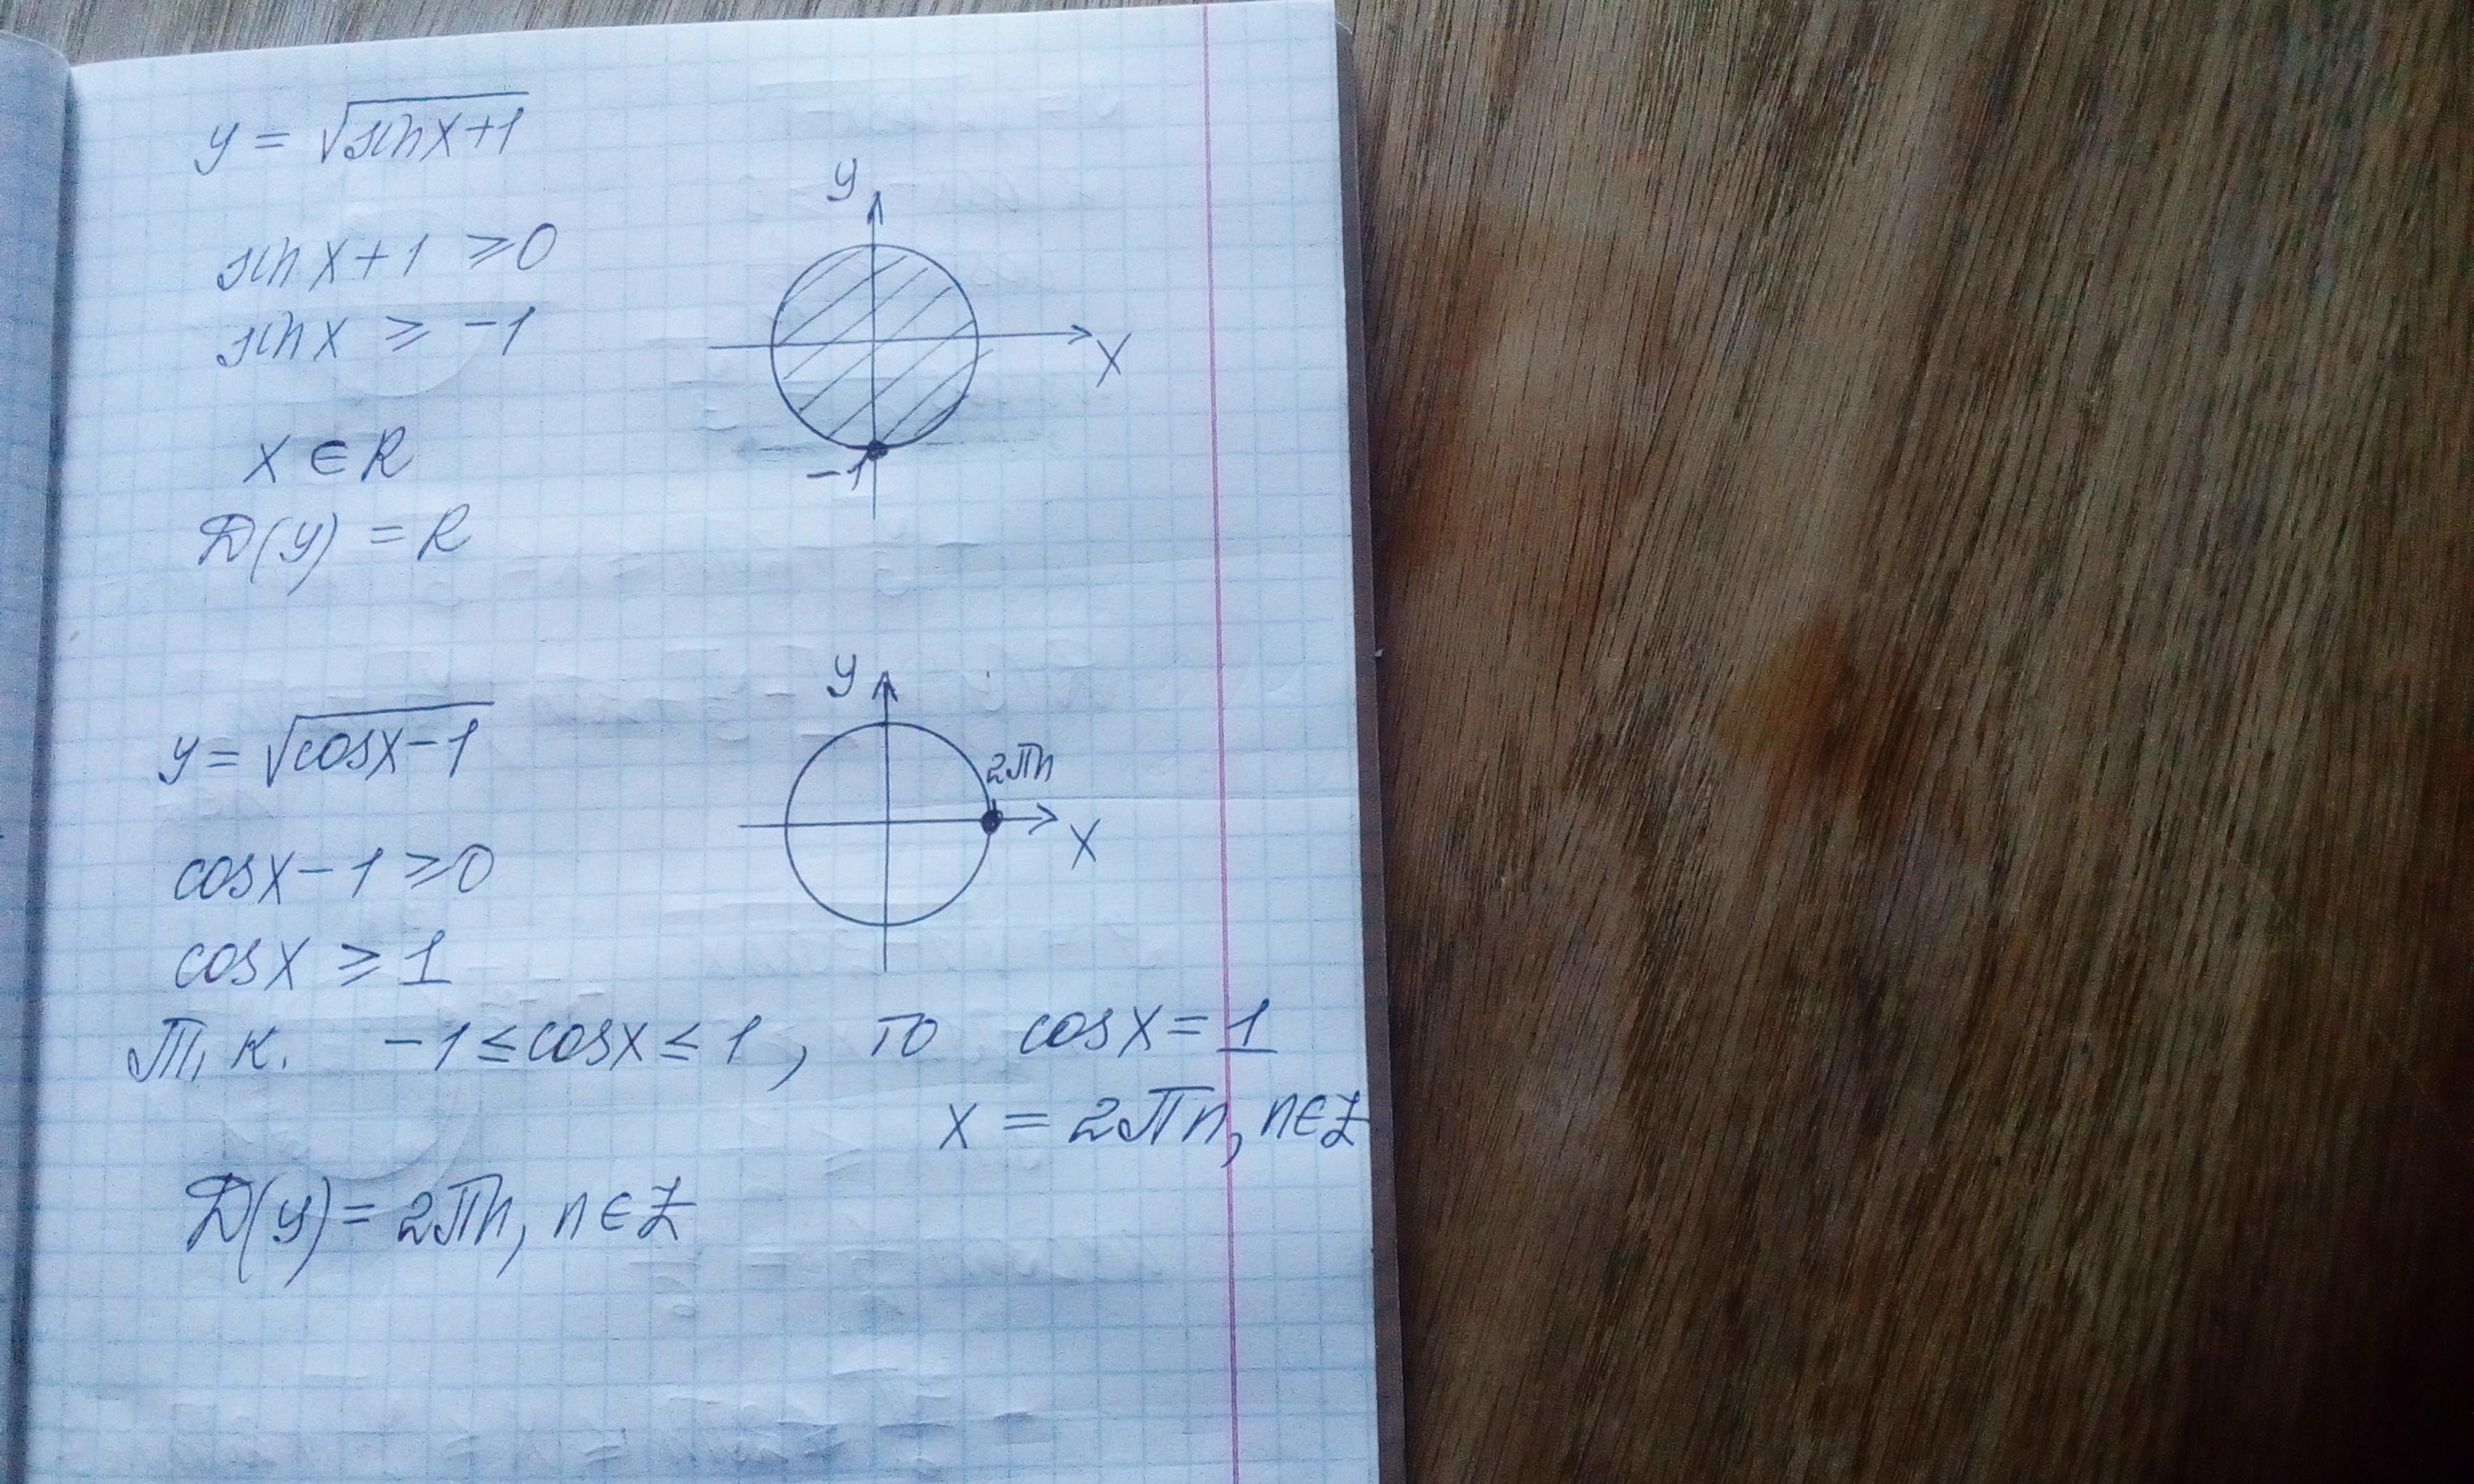 y = √sinx+1
sinx+1 ≥0
sinx ≥ -1
x ∈ R
D(y) = R
y
x
-1
y = √cosx-1
cosx-1 ≥0
cosx ≥ 1
y
2πn
x
Т.к. -1≤cosx≤1, то cosx=1
x = 2πn, n∈Z
D(y)= 2πn, n∈Z